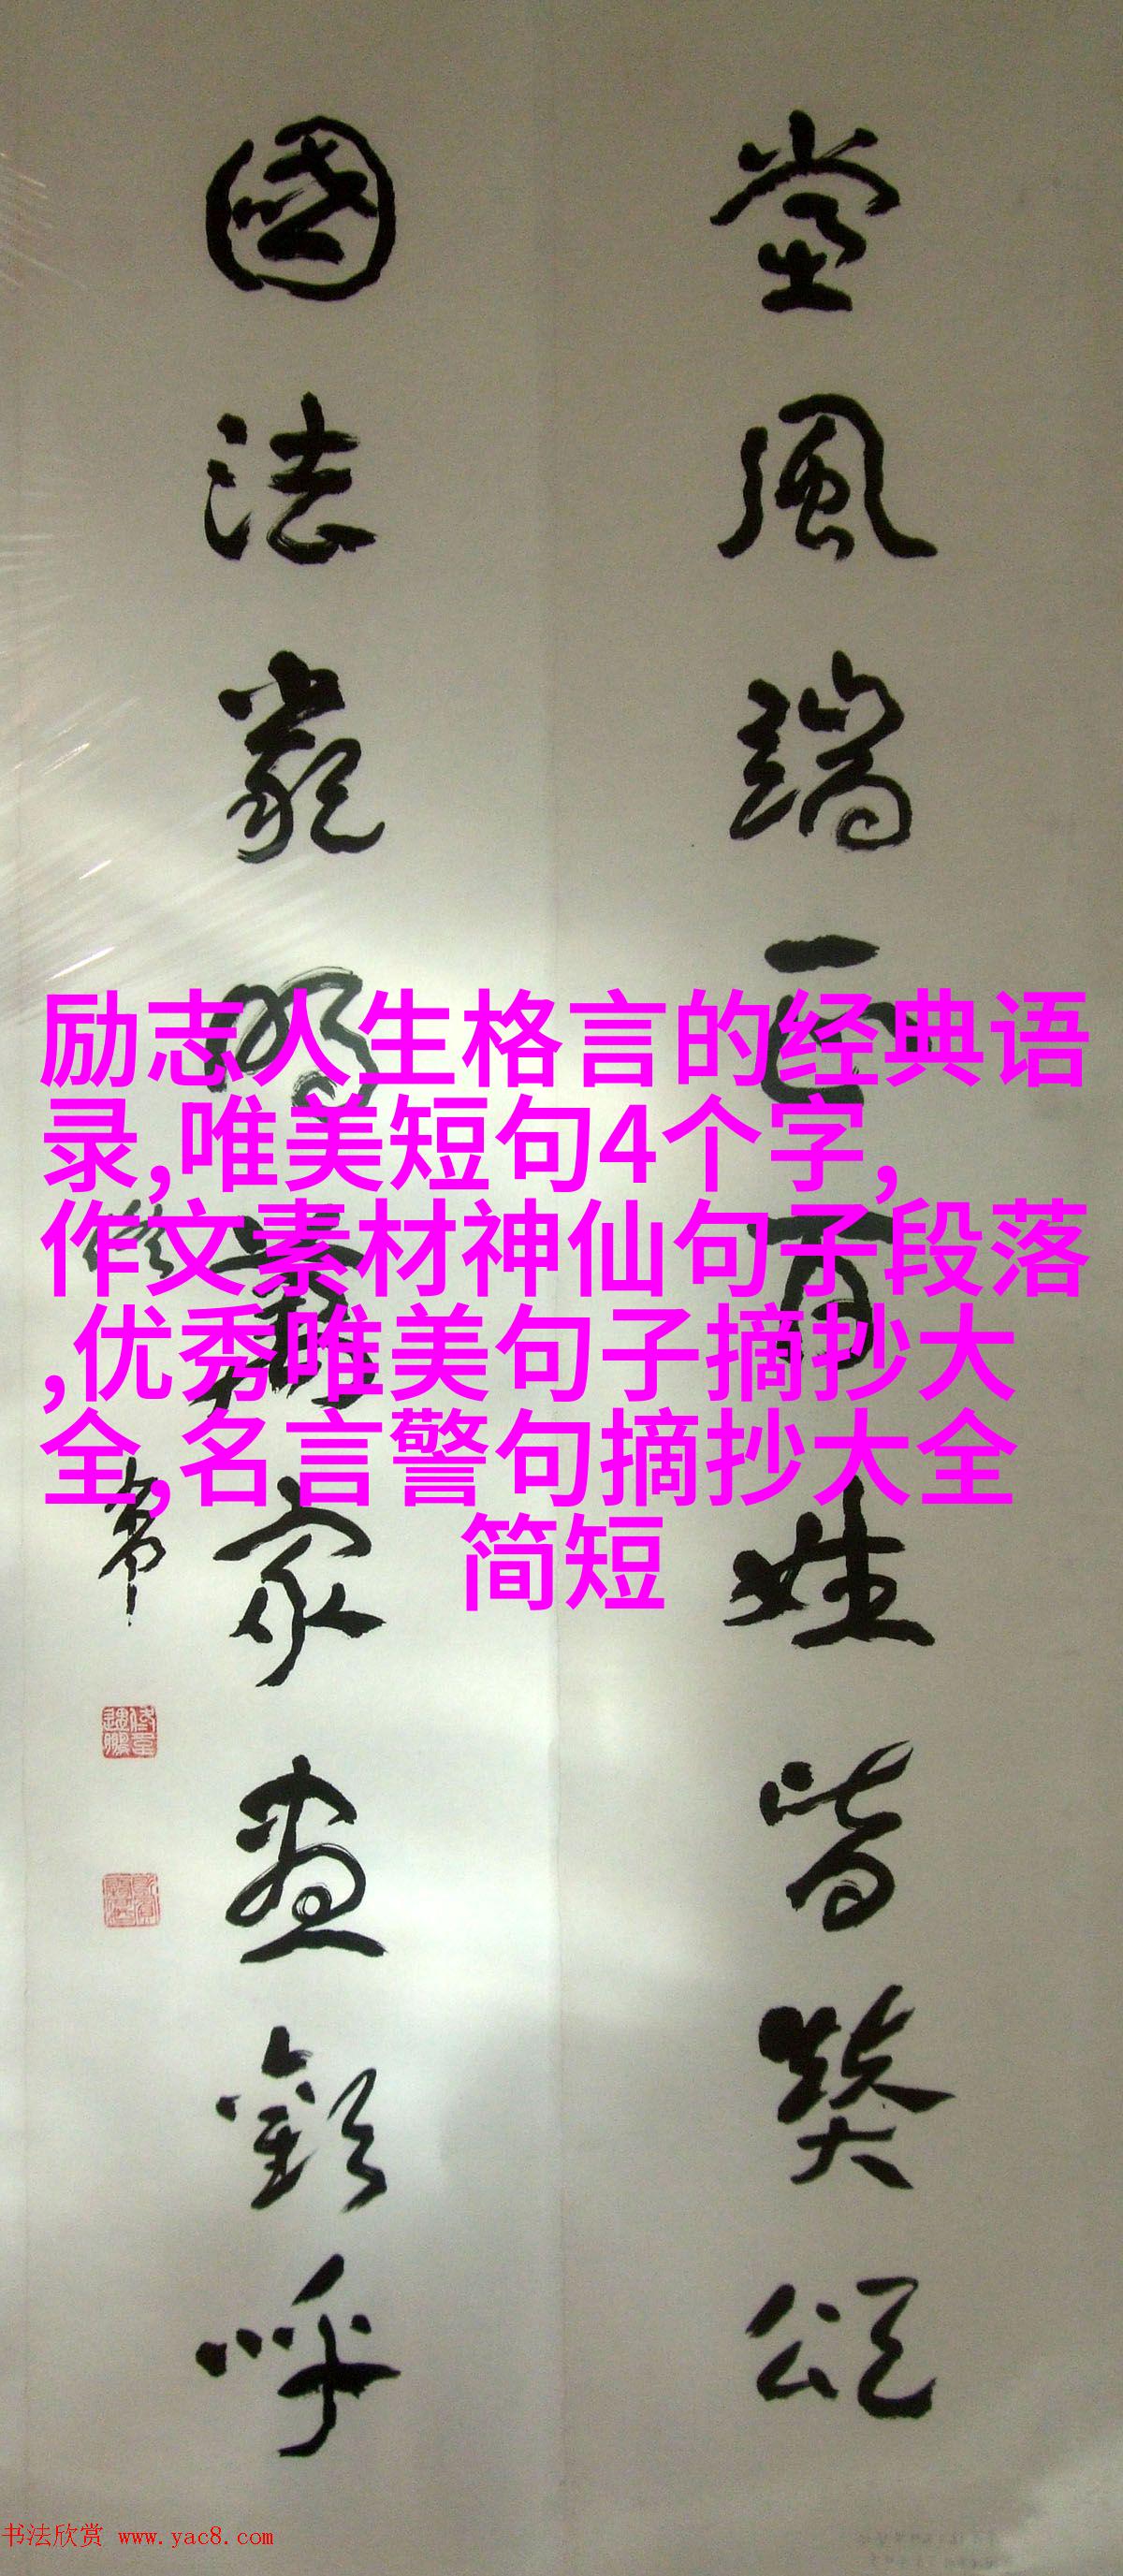 黨風端正百姓皆奬頌
國法嚴明萬家盡歡呼
励志人生格言的经典语
录,唯美短句4个字,
作文素材神仙句子段落
,优秀唯美句子摘抄大
全,名言警句摘抄大全
简短
书法欣赏 www.yac8.com